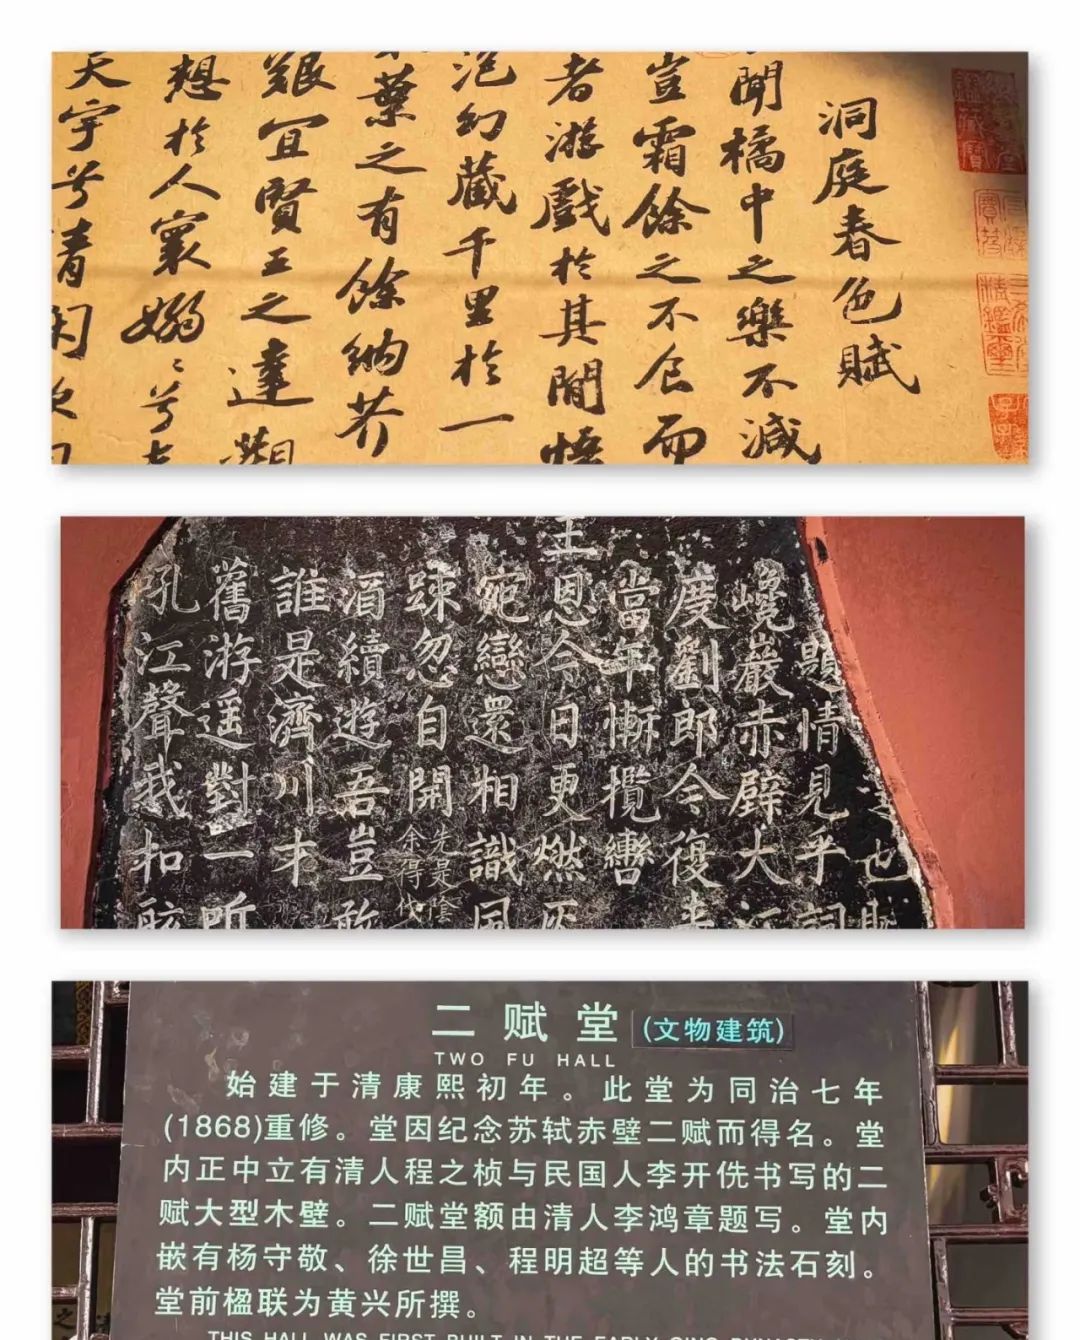 洞庭春色賦
聞橘中之樂不減
豈霜餘之不食而
者游戲於其間悟
泡幻藏千里於一
葉之有餘納芥
艱宜賢王之達觀
想於人寰嫋ミ兮
天宇兮清閑吹
也
題情見乎詞
巉巖赤壁大江
度劉郎今復
當年慚攬轡
主恩今日更燃灰
宛戀還相識風
疎忽自開
先是陰
余得代
酒續遊吾豈敢
誰是濟川才
舊游遥對一
吼江聲我扣舷
二赋堂
(文物建筑)
TWO FU HALL
始建于清康熙初年。此堂为同治七年
(1868)重修。堂因纪念苏轼赤壁二赋而得名。堂
内正中立有清人程之桢与民国人李开侁书写的二
赋大型木壁。二赋堂额由清人李鸿章题写。堂内
嵌有杨守敬、徐世昌、程明超等人的书法石刻。
堂前楹联为黄兴所撰。
THIS HALL WAS FIRST BUILT IN THE EARLY QING DYNASTY